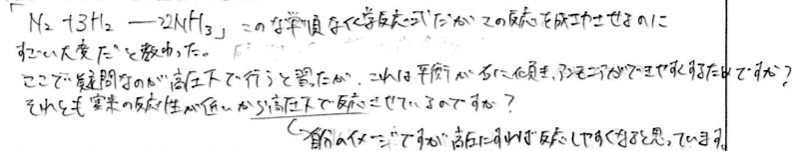 「N₂ + 3H₂ → 2NH₃」 このな単純な化学反応式だがこの反応を成功させるのに
すごい大変だと教わった。
ここで疑問なのが高圧下で行うと習ったが、これは平衡が右に傾き、アンモニアができやすくするためですか?
それとも実際の反応性が低いから高圧下で反応させているのですか?
自分のイメージですが高圧にすれば反応しやすくなると思っています。